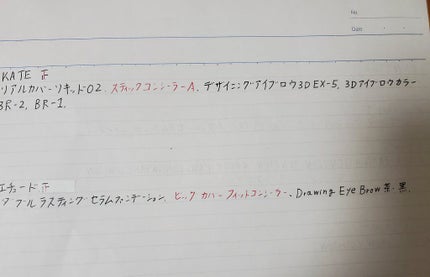 No.
Date
KATE 正
リアルカバーリキッド02、スティックコンシーラーA、デザイニングアイブロウ3D EX-5、3Dアイブロウカラー
BR-2、BR-1、
エチュード 正
ダブルラスティングセラムファンデーション、ビッグカバーフィットコンシーラー、Drawing Eye Brow 茶・黒